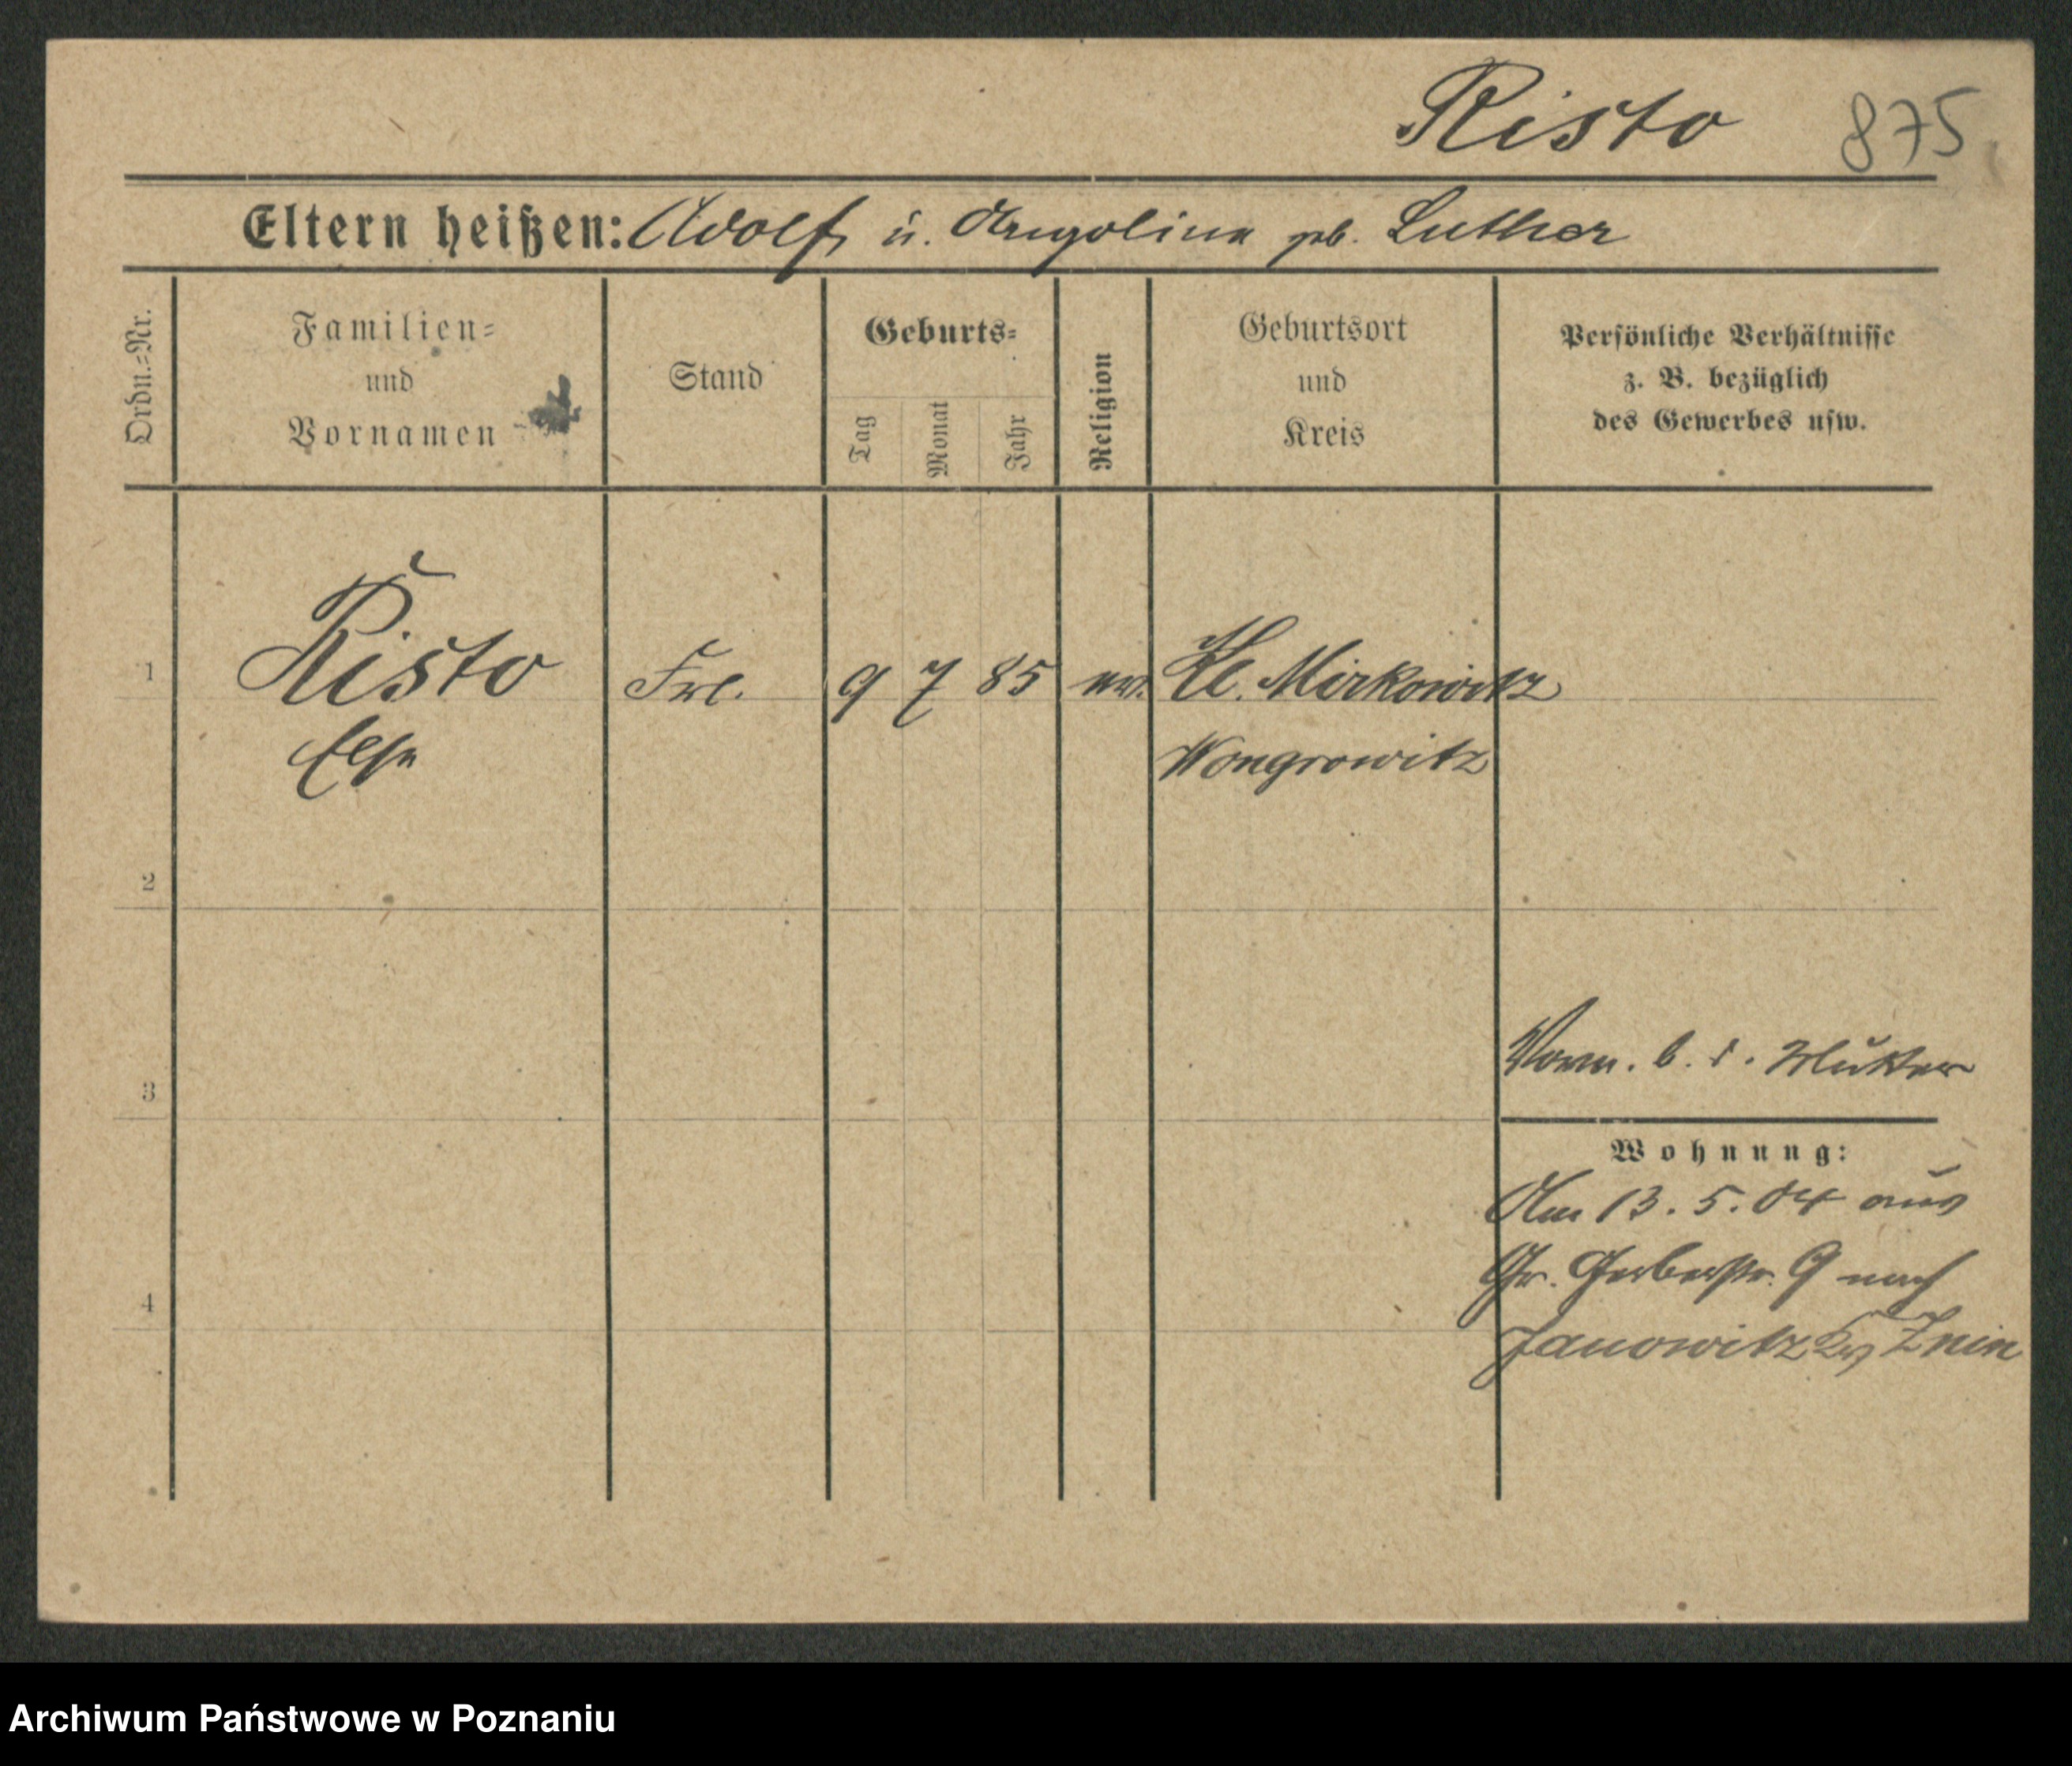 Risto 875
Eltern heißen: Adolf u. Angelina geb. Luther
Ordn.=Nr.
Familien=
und
Vornamen
Stand
Geburts=
Tag
Monat
Jahr
Religion
Geburtsort
und
Kreis
Persönliche Verhältnisse
z. B. bezüglich
des Gewerbes usw.
1 Risto Frl. 9 7 85 ev. Kl. Mirkowitz
Else Wongrowitz
2
3
Vorm. b. d. Mutter
Wohnung:
Am 13. 5. 04 aus
Gr. Gerberstr. 9 nach
4
Janowitz Kr. Znin
Archiwum Państwowe w Poznaniu